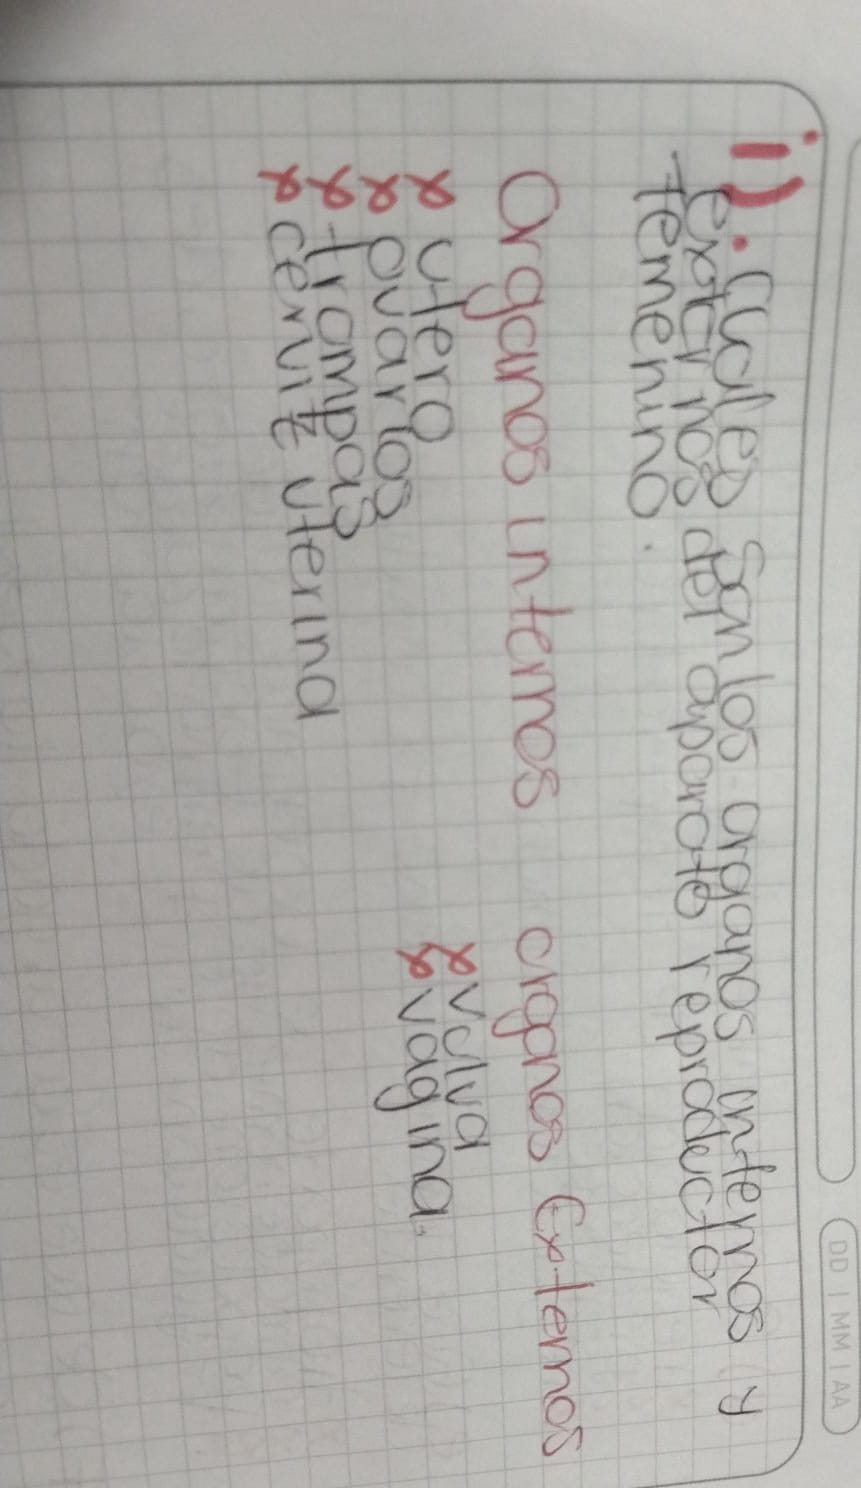 DD | MM | AA
1). Cuales son los organos internos y
externos del aparato reproductor
femenino.
Organos internos
organos Externos
x utero
x ovarios
x trompas
x cervix uterina
x vulva
x vagina.